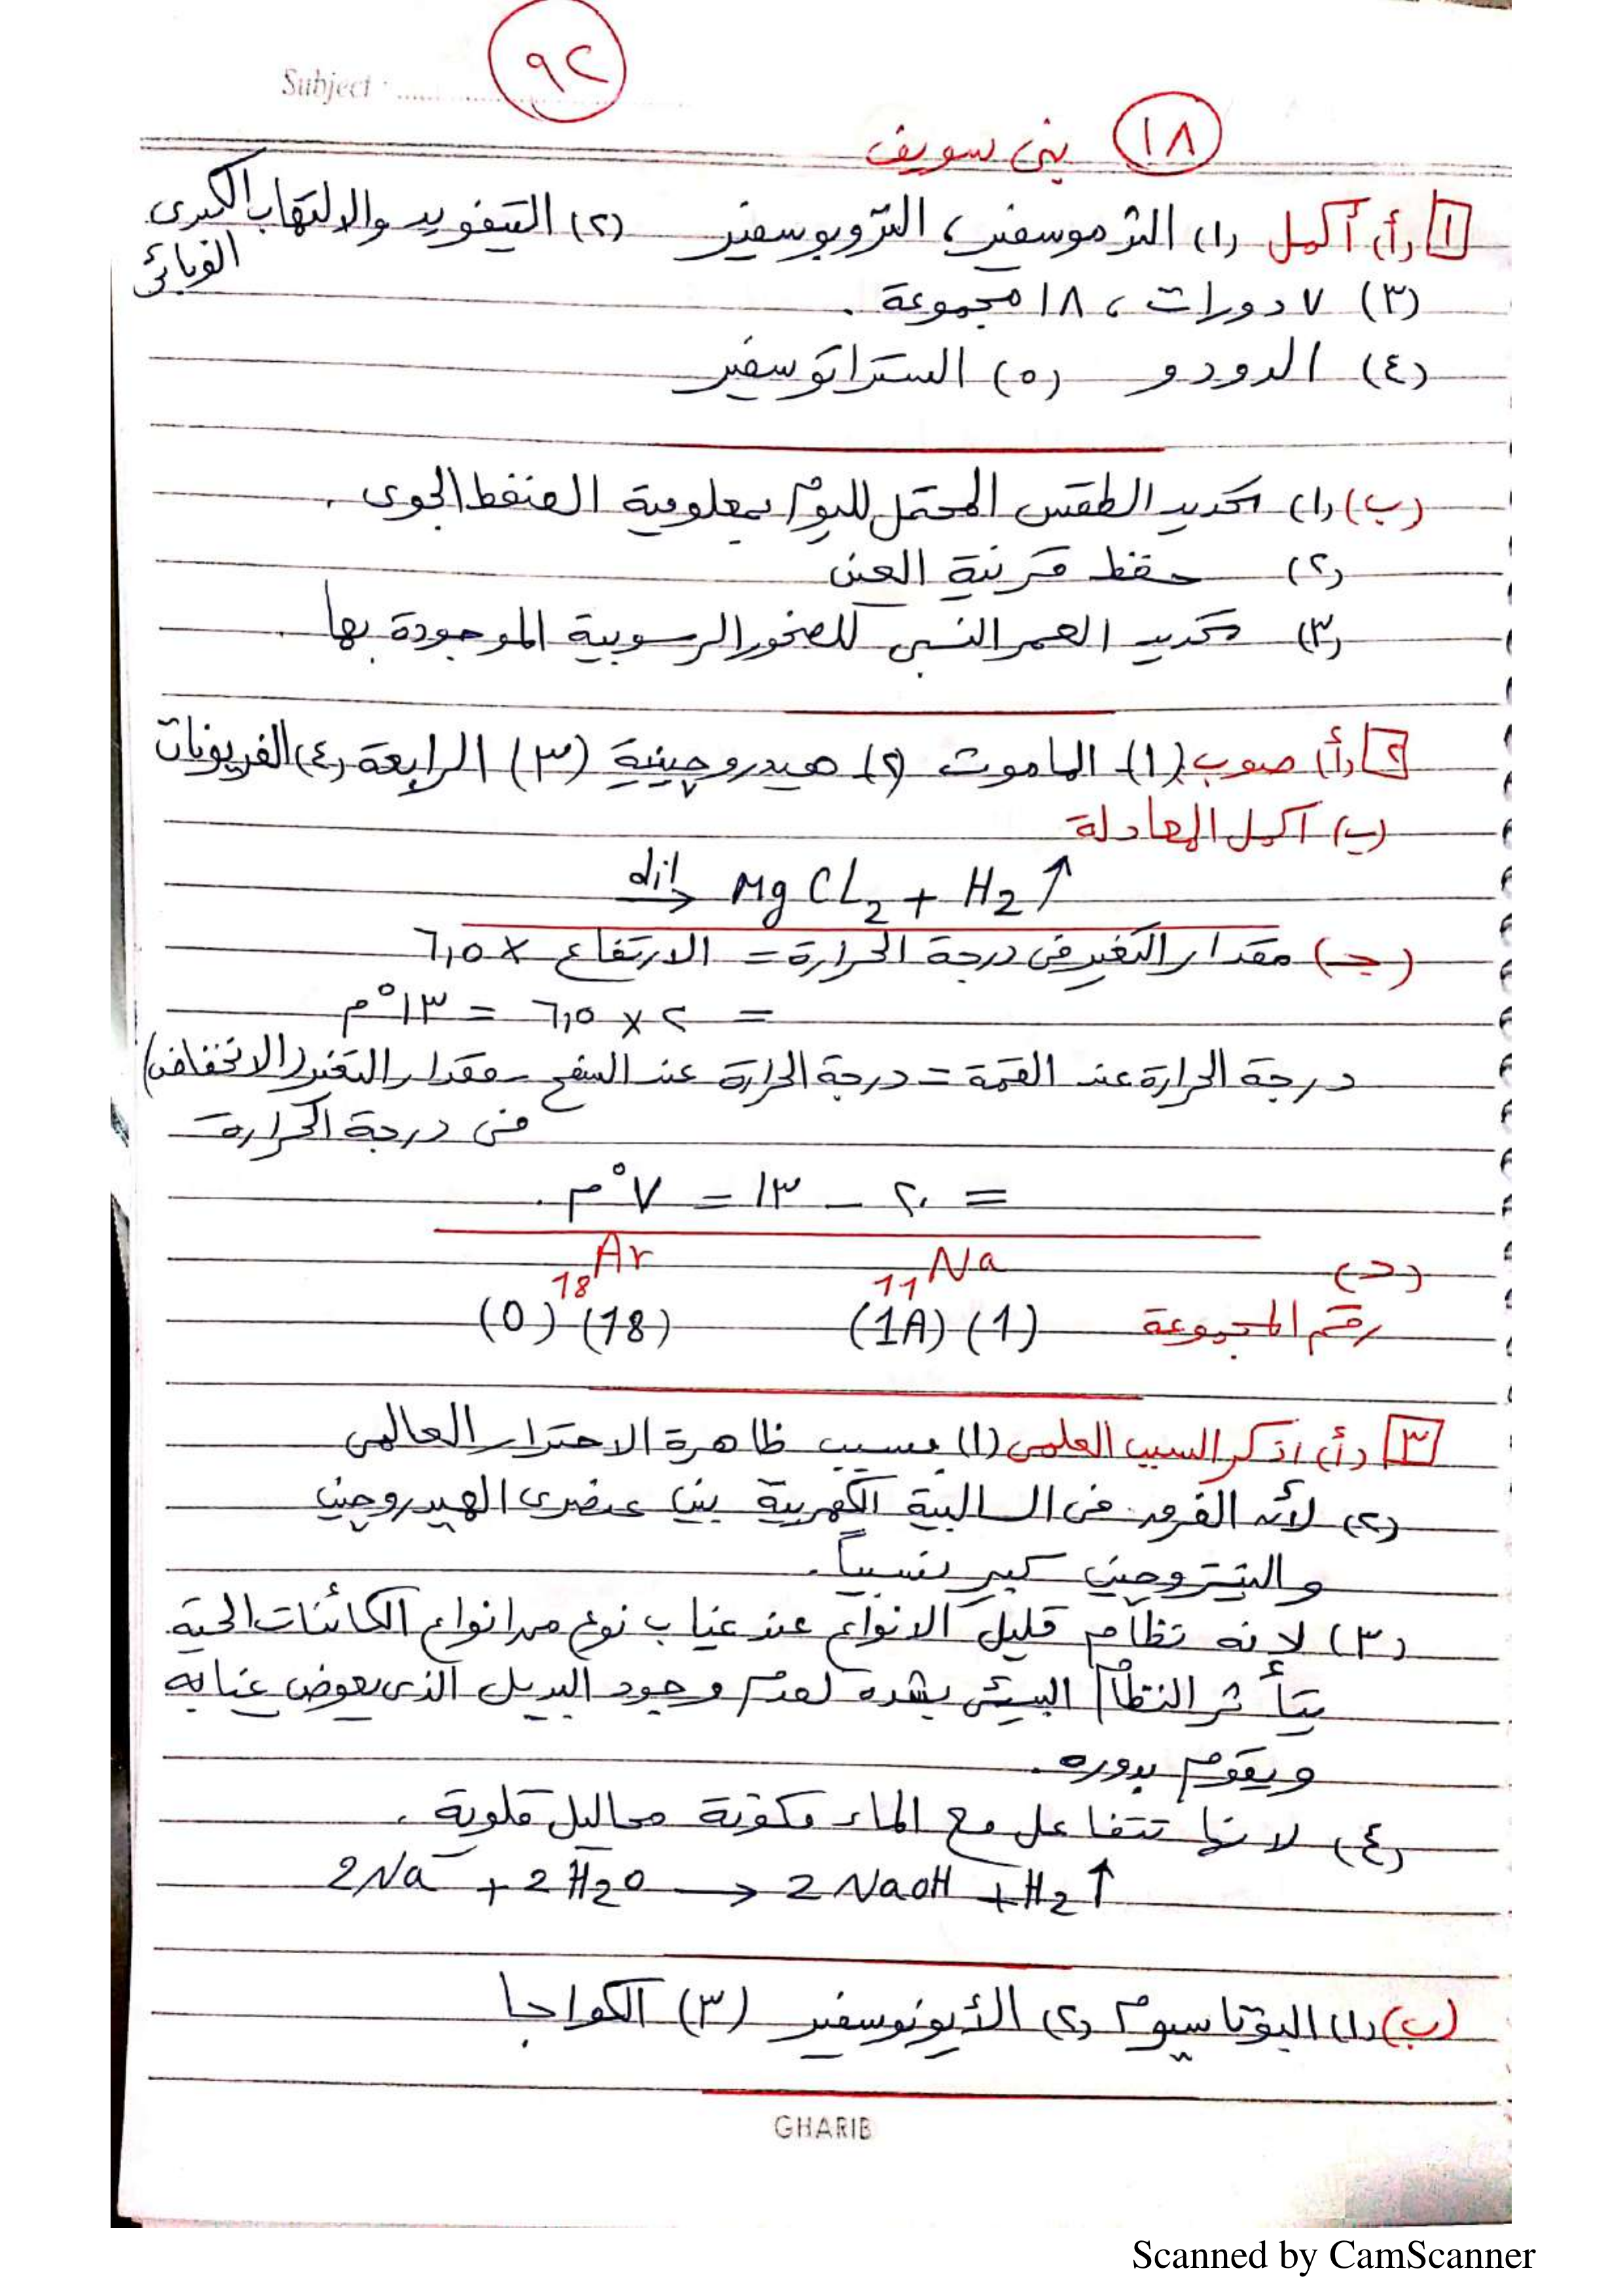 Subject : ..............
٩٢
١٨ بنى سويف
١ (أ) أكمل (١) الثرموسفير، التروبوسفير (٢) التيفويد والالتهاب الكبدى الوبائى
(٣) ٧ دورات ، ١٨ مجموعة .
(٤) الدودو (٥) الستراتوسفير
(ب) (١) تحديد الطقس المحتمل لليوم بمعلومية الضغط الجوى .
(٢) حفظ قرنية العين
(٣) تحديد العمر النسبى للصخور الرسوبية الموجودة بها .
٢ (أ) صوب (١) الماموث (٢) هيدروچينية (٣) الرابعة (٤) الفريونات
(ب) أكمل المعادلة
dil → MgCl2 + H2 ↑
(جـ) مقدار التغير فى درجة الحرارة = الارتفاع × ٦,٥
= ٢ × ٦,٥ = ١٣°م
درجة الحرارة عند القمة = درجة الحرارة عند السفح - مقدار التغير (الانخفاض)
فى درجة الحرارة
= ٢٠ - ١٣ = ٧°م .
(د) 11Na 18Ar
رقم المجموعة (1) (1A) (18) (0)
٣ (أ) اذكر السبب العلمى (١) بسبب ظاهرة الاحترار العالمى
(٢) لأن الفرق فى السالبية الكهربية بين عنصرى الهيدروچين
والنيتروچين كبير نسبياً .
(٣) لانه نظام قليل الانواع عند غياب نوع من انواع الكائنات الحية
يتأثر النظام البيئى بشدة لعدم وجود البديل الذى يعوض غيابه
ويقوم بدوره .
(٤) لانها تتفاعل مع الماء مكونة محاليل قلوية .
2Na + 2H2O → 2NaOH + H2 ↑
(ب) (١) البوتاسيوم (٢) الأيونوسفير (٣) الكواجا
GHARIB
Scanned by CamScanner